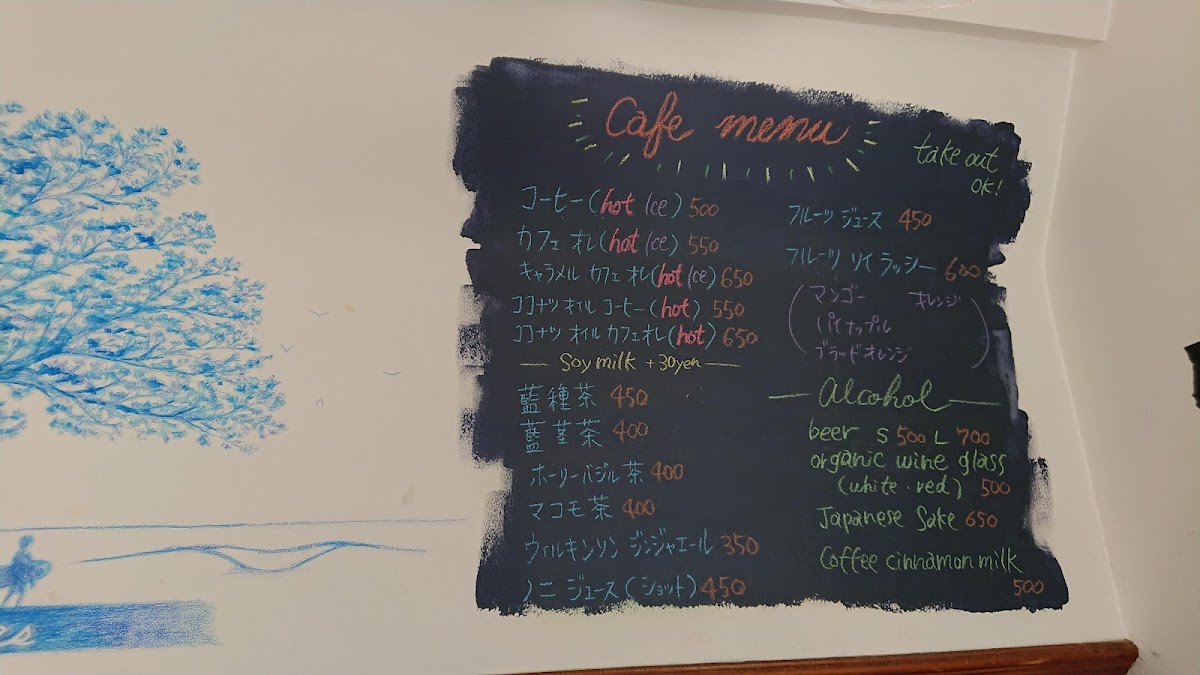 Cafe menu
take out
OK!
コーヒー(hot Ice) 500
カフェ オレ(hot Ice) 550
キャラメル カフェ オレ(hot Ice) 650
ココナツ オイル コーヒー(hot) 550
ココナツ オイル カフェオレ(hot) 650
Soy milk +30yen
藍種茶 450
藍茎茶 400
ホーリーバジル茶 400
マコモ茶 400
ウィルキンソン ジンジャエール 350
ノニ ジュース(ショット) 450
フルーツ ジュース 450
フルーツ ソイ ラッシー 600
(マンゴー オレンジ
パイナップル
ブラッドオレンジ)
Alcohol
beer S 500 L 700
organic wine glass
(white・red) 500
Japanese Sake 650
Coffee cinnamon milk
500
es